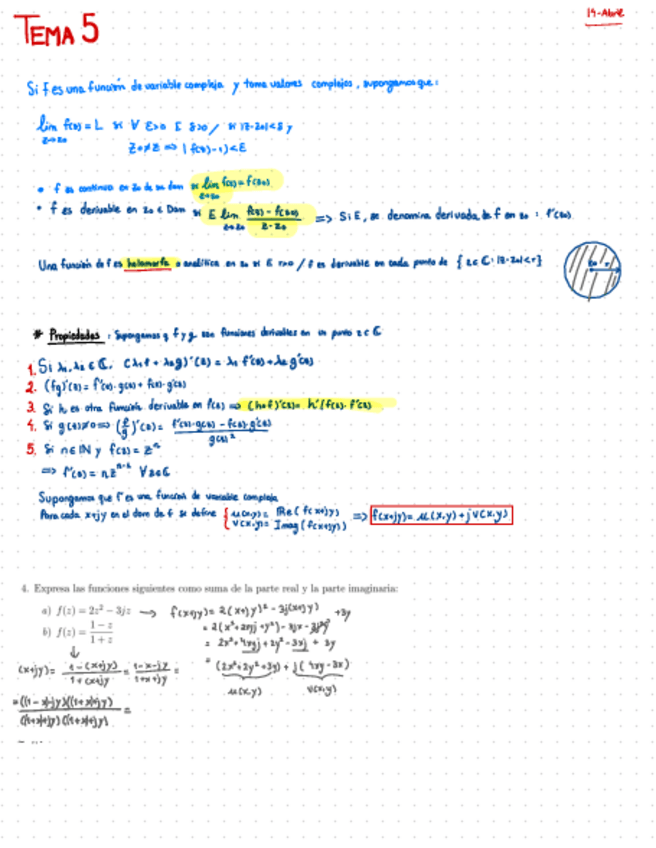 14-Abril
TEMA 5
Si f es una función de variable compleja y toma valores complejos, supongamos que:
lim f(z) = L si ∀ ε>0 E δ>0 / si |z-z0|<δ y
z→z0
z0≠z => |f(z)-L|<ε
• f es continua en z0 de su dom si lim f(z) = f(z0)
z→z0
• f es derivable en z0 ∈ Dom si E lim f(z) - f(z0) / z - z0 => Si E, se denomina derivada de f en z0 : f'(z0)
z→z0
Una función de f es holomorfa o analítica en z0 si E r>0 / f es derivable en cada punto de { z ∈ ℂ : |z-z0|<r}
z0 r
* Propiedades : Supongamos q f y g son funciones derivables en un punto z ∈ ℂ
1. Si λ1, λ2 ∈ ℂ, (λ1f + λ2g)'(z) = λ1 f'(z) + λ2 g'(z)
2. (fg)'(z) = f'(z)·g(z) + f(z)·g'(z)
3. Si h es otra función derivable en f(z) => (h∘f)'(z) = h'(f(z))·f'(z)
4. Si g(z)≠0 => (f/g)'(z) = f'(z)·g(z) - f(z)·g'(z) / g(z)²
5. Si n∈ℕ y f(z) = zⁿ
=> f'(z) = nzⁿ⁻¹ ∀z∈ℂ
Supongamos que f es una función de variable compleja
Para cada x+jy en el dom de f se define { u(x,y) = Re( f(x+jy)) => f(x+jy) = u(x,y) + j v(x,y)
v(x,y) = Imag( f(x+jy))
4. Expresa las funciones siguientes como suma de la parte real y la parte imaginaria:
a) f(z) = 2z² − 3jz → f(x+jy) = 2(x+jy)² - 3j(x+jy) +3y
= 2(x²+2xyj+y²) - 3jx - 3j²y
b) f(z) = 1 − z / 1 + z
= 2x²+4xyj+2y² - 3xj + 3y
↓
= (2x²+2y²+3y) + j(4xy-3x)
u(x,y) v(x,y)
(x+jy) = 1-(x+jy) / 1+(x+jy) = 1-x-jy / 1+x+jy =
= ((1-x)-jy)((1+x)+jy) / ((1+x)+jy)((1+x)+jy) =
- ...